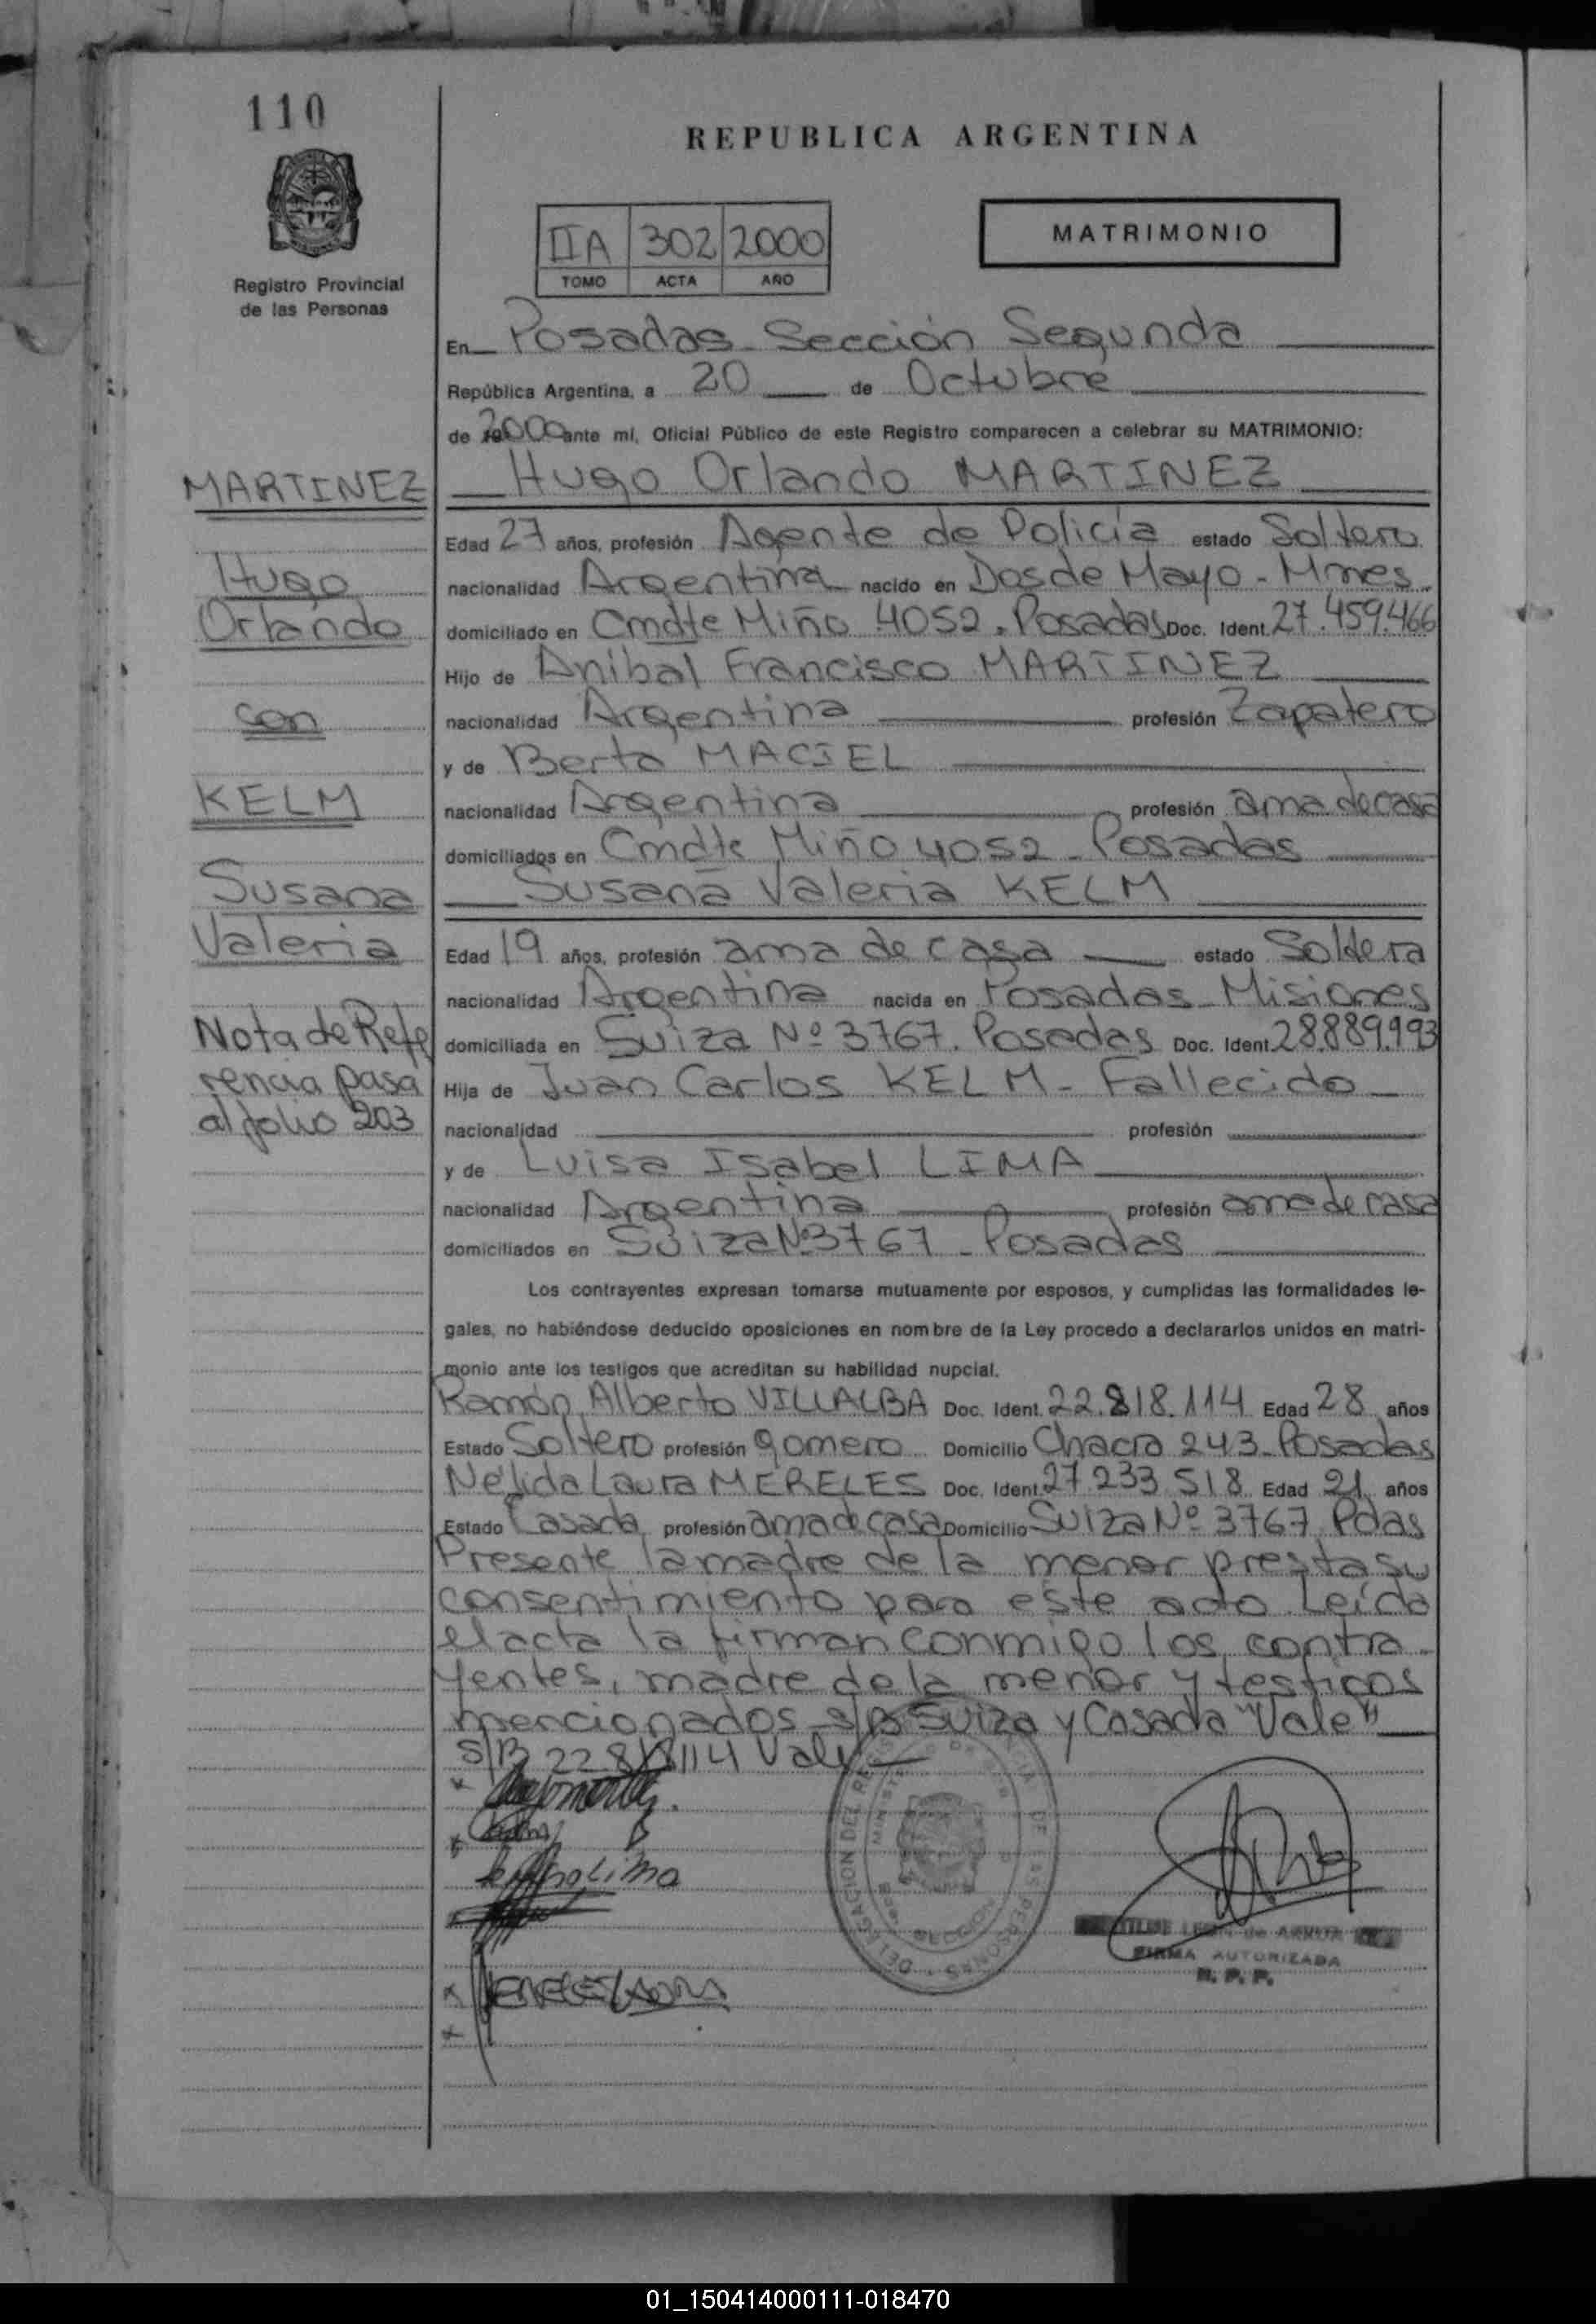 110
REPUBLICA ARGENTINA
IIA 302 2000
TOMO ACTA AÑO
MATRIMONIO
Registro Provincial
de las Personas
En Posadas - Sección Segunda
República Argentina, a 20 de Octubre
de 2000 ante mí, Oficial Público de este Registro comparecen a celebrar su MATRIMONIO:
MARTINEZ
Hugo Orlando MARTINEZ
Edad 27 años, profesión Agente de Policía estado Soltero
Hugo
nacionalidad Argentina nacido en Dos de Mayo - Mnes.
Orlando
domiciliado en Cmdte Miño 4052. Posadas Doc. Ident. 27.459.466
Hijo de Anibal Francisco MARTINEZ
con
nacionalidad Argentina profesión Zapatero
y de Berta MACIEL
KELM
nacionalidad Argentina profesión ama de casa
domiciliados en Cmdte Miño 4052 - Posadas
Susana
Susana Valeria KELM
Valeria
Edad 19 años, profesión ama de casa estado Soltera
nacionalidad Argentina nacida en Posadas - Misiones
Nota de Refe
domiciliada en Suiza Nº 3767. Posadas Doc. Ident. 28.889.993
rencia pasa
Hija de Juan Carlos KELM - Fallecido
al folio 203
nacionalidad profesión
y de Luisa Isabel LIMA
nacionalidad Argentina profesión ama de casa
domiciliados en Suiza Nº 3767 - Posadas
Los contrayentes expresan tomarse mutuamente por esposos, y cumplidas las formalidades le-
gales, no habiéndose deducido oposiciones en nombre de la Ley procedo a declararlos unidos en matri-
monio ante los testigos que acreditan su habilidad nupcial.
Ramón Alberto VILLALBA Doc. Ident. 22.818.114 Edad 28 años
Estado Soltero profesión gomero Domicilio Chacra 243 - Posadas
Nélida Laura MERELES Doc. Ident. 27.233.518 Edad 21 años
Estado Casada profesión ama de casa Domicilio Suiza Nº 3767 Pdas
Presente la madre de la menor presta su
consentimiento para este acto. Leída
el acta la firman conmigo los contra-
yentes, madre de la menor y testigos
mencionados - S/B Suiza y Casada "Vale"
S/B 22.818.114 Vale
Lima
MERELES LAURA
DELEGACION DEL REGISTRO DE LAS PERSONAS
SECCION
FIRMA AUTORIZADA
R. P. P.
01_150414000111-018470